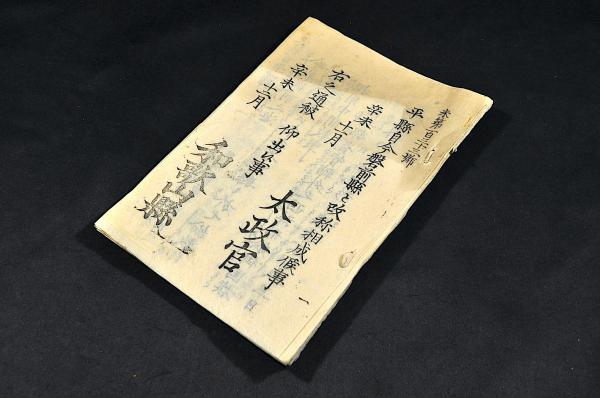 未第百三十三號
平縣自今磐前縣と改称相成候事
辛未十一月
太政官
右之通被仰出候事
辛未十二月
和歌山縣